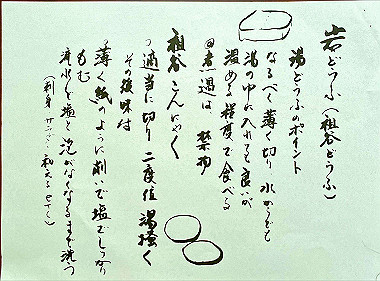 岩どうふ(祖谷どうふ)
湯どうふのポイント
なるべく薄く切り、水からでも
湯の中に入れても良いが
温める程度で食べる
煮過は禁物
祖谷こんにゃく
適当に切り二度位湯掻く
その後味付
薄く紙のように削いで塩でしっかり
もむ
清水で塩と泡がなくなるまで洗う
(刺身 サラダ 和えるetc)